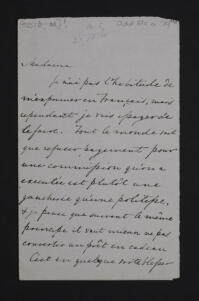 Madame
Je n'ai pas l'habitude de
m'exprimer en Français, mais
cependant je vais essayer de
le faire. Tout le monde sait
que refuser payement pour
une commission qu'on a
executée est plutôt une
gaucherie qu'une politesse,
& je pense que suivant le même
principe il vaut mieux ne pas
convertir un prêt en cadeau
C'est en quelque sorte